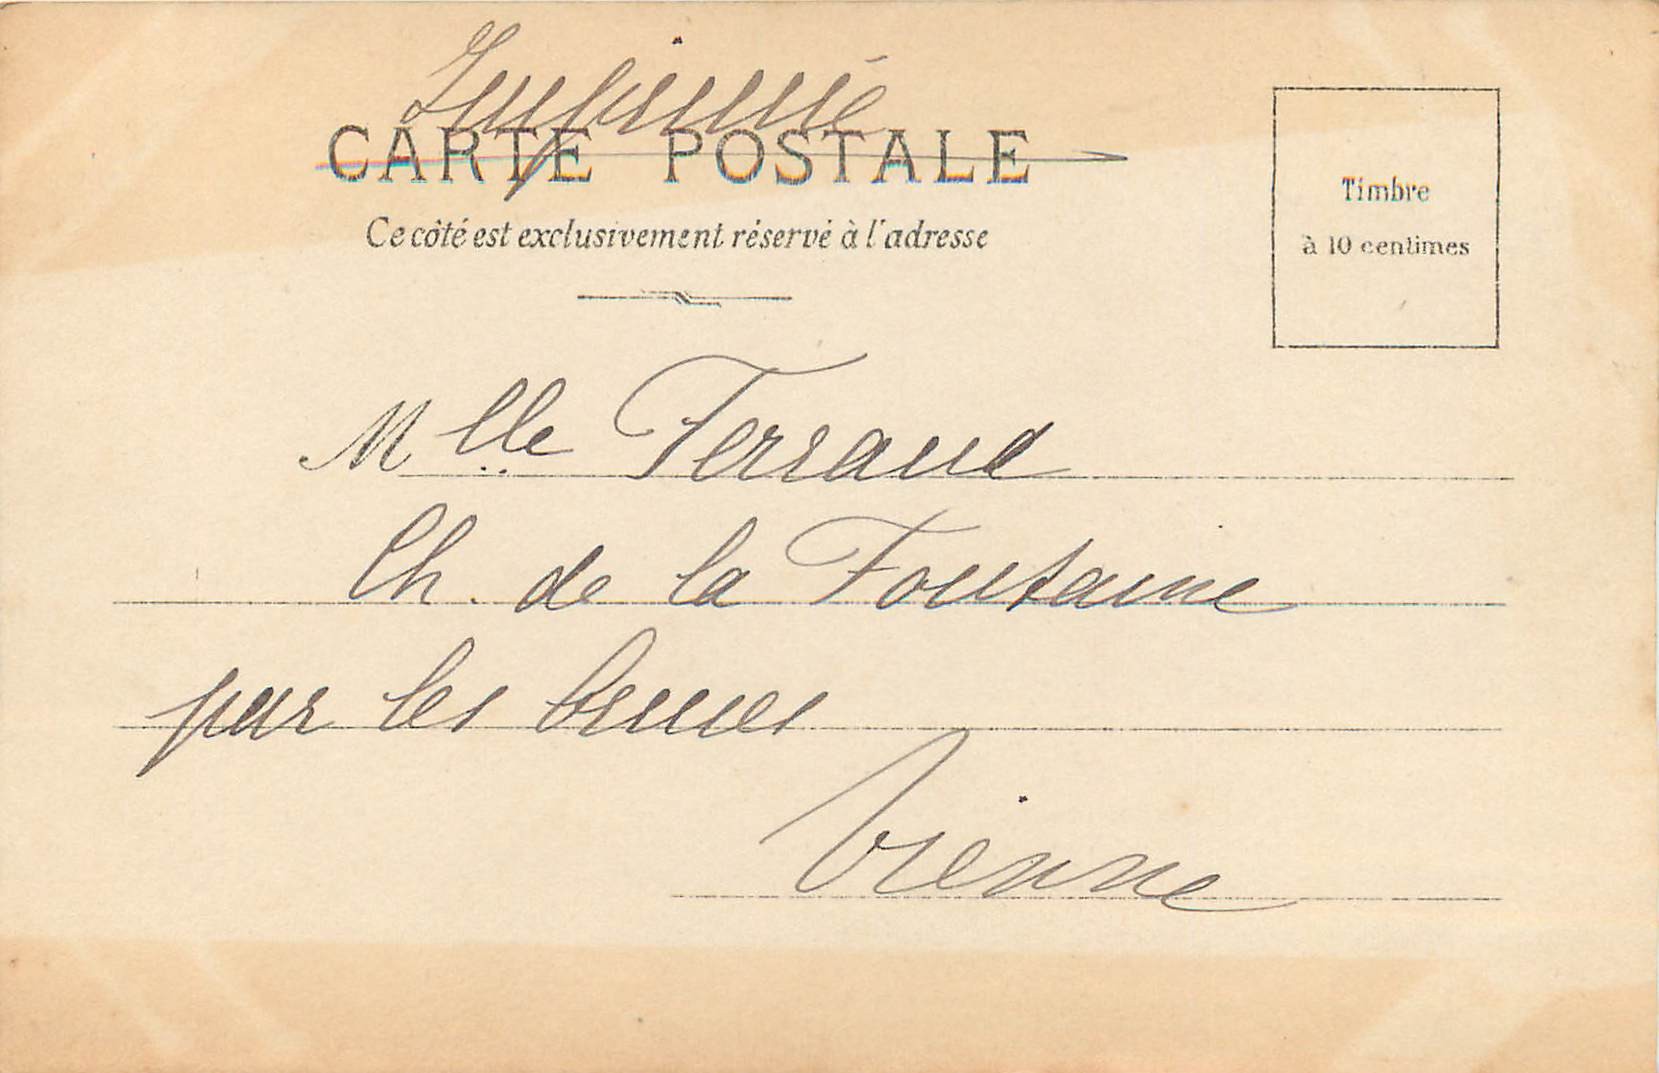 Imprimé
CARTE POSTALE
Ce côté est exclusivement réservé à l'adresse
Timbre
à 10 centimes
Mlle Ferraud
Ch. de la Fontaine
par les
Vienne